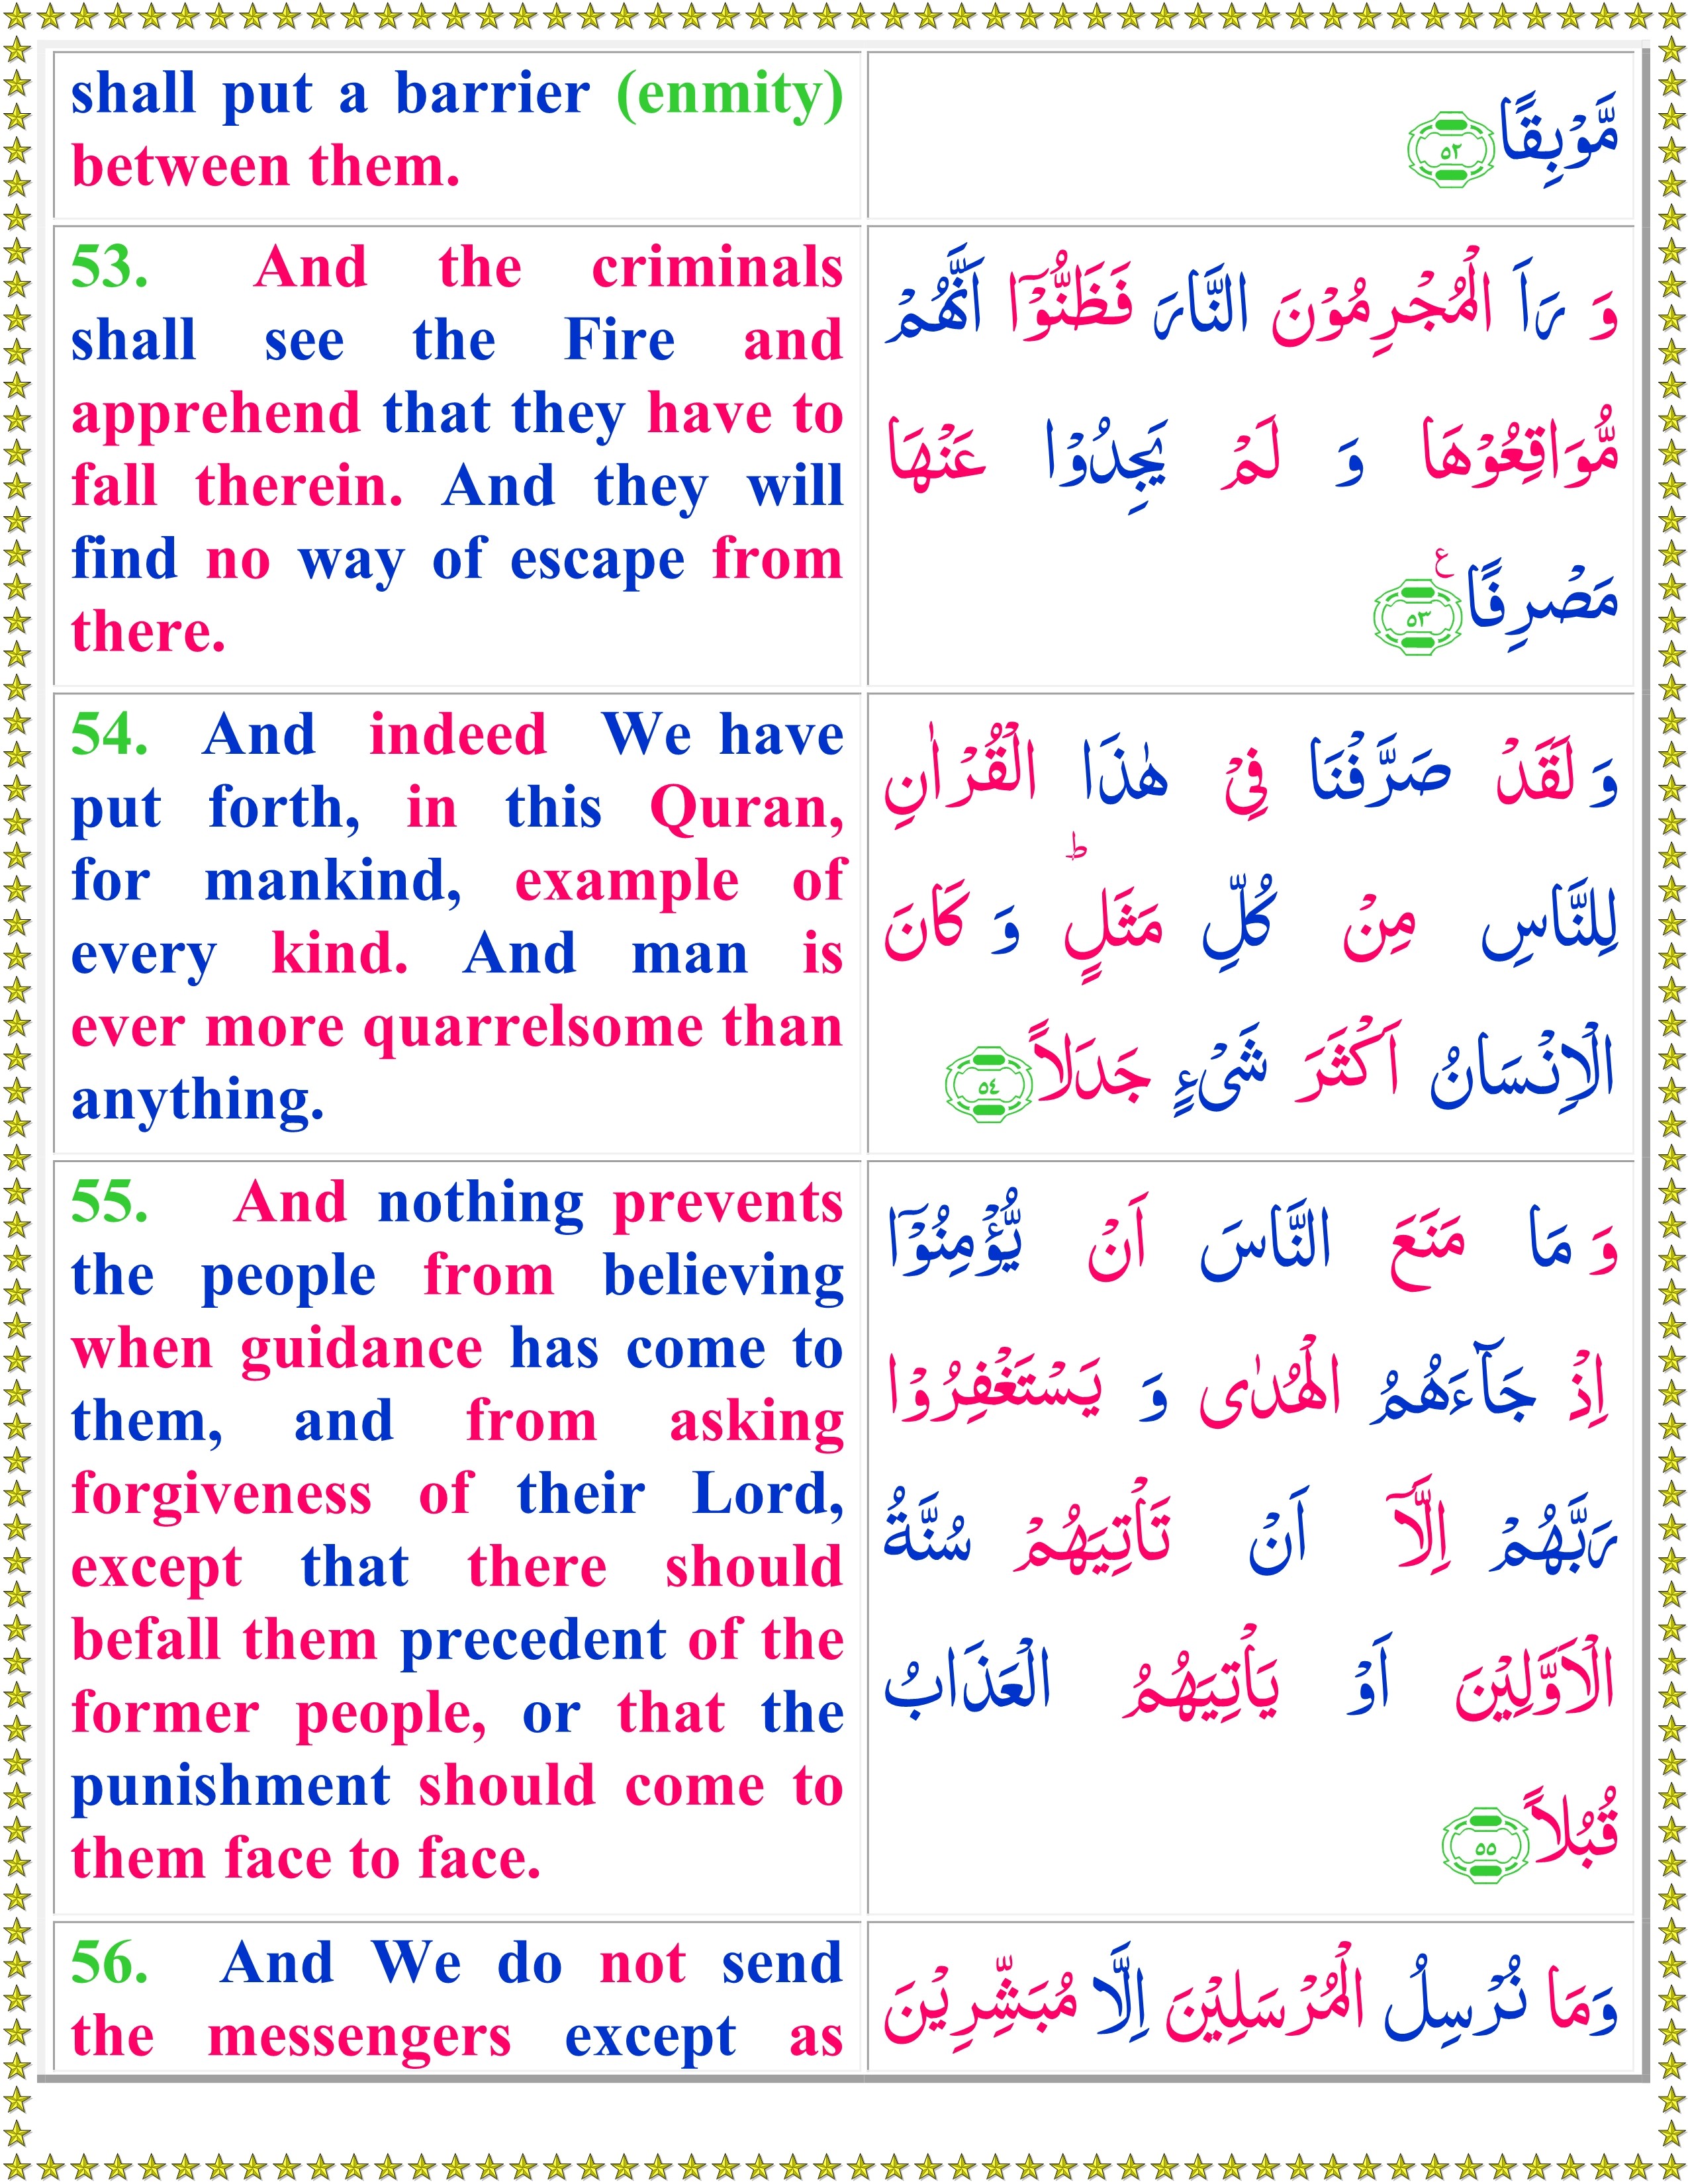 shall put a barrier (enmity)
between them.
مَّوْبِقًا ٥٢
53. And the criminals
shall see the Fire and
apprehend that they have to
fall therein. And they will
find no way of escape from
there.
وَ رَاَ الْمُجْرِمُوْنَ النَّارَ فَظَنُّوْۤا اَنَّهُمْ
مُّوَاقِعُوْهَا وَ لَمْ يَجِدُوْا عَنْهَا
مَصْرِفًا ٥٣ ع
54. And indeed We have
put forth, in this Quran,
for mankind, example of
every kind. And man is
ever more quarrelsome than
anything.
وَ لَقَدْ صَرَّفْنَا فِىْ هٰذَا الْقُرْاٰنِ
لِلنَّاسِ مِنْ كُلِّ مَثَلٍ ؕ وَ كَانَ
الْاِنْسَانُ اَكْثَرَ شَىْءٍ جَدَلاً ٥٤
55. And nothing prevents
the people from believing
when guidance has come to
them, and from asking
forgiveness of their Lord,
except that there should
befall them precedent of the
former people, or that the
punishment should come to
them face to face.
وَ مَا مَنَعَ النَّاسَ اَنْ يُّؤْمِنُوْۤا
اِذْ جَآءَهُمُ الْهُدٰى وَ يَسْتَغْفِرُوْا
رَبَّهُمْ اِلَّاۤ اَنْ تَاْتِيَهُمْ سُنَّةُ
الْاَوَّلِيْنَ اَوْ يَاْتِيَهُمُ الْعَذَابُ
قُبُلاً ٥٥
56. And We do not send
the messengers except as
وَمَا نُرْسِلُ الْمُرْسَلِيْنَ اِلَّا مُبَشِّرِيْنَ